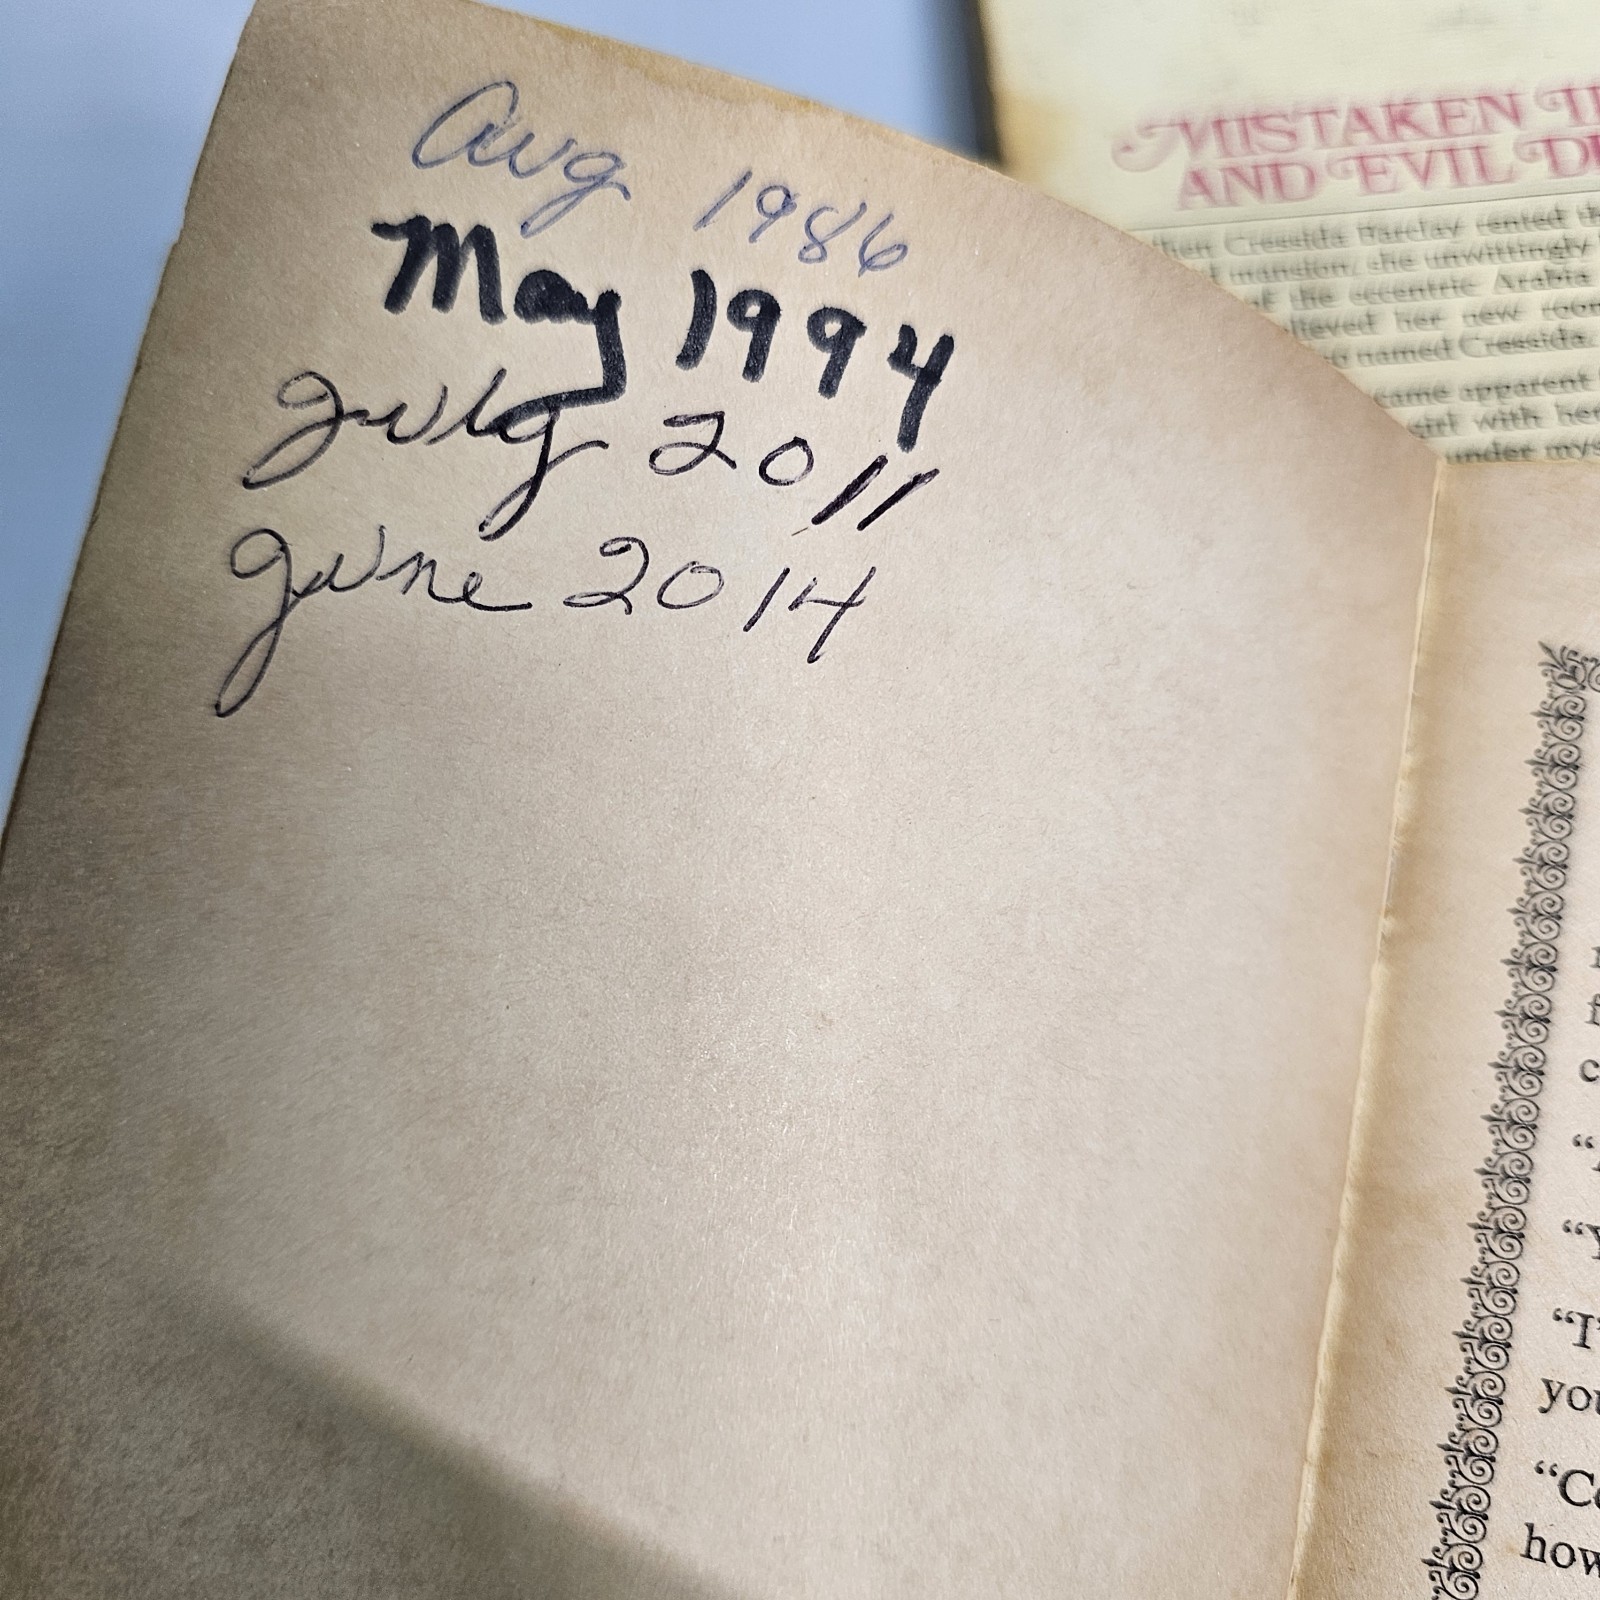 Aug 1986
May 1994
July 2011
June 2014
MISTAKEN
AND EVIL
Cressida Barclay rented
mansion, she unwittingly
the eccentric Arabia
her new
named Cressida.
came apparent
girl with her
under
"I
you
how